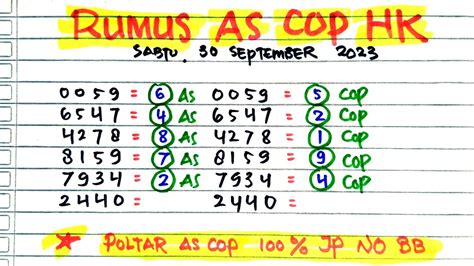 RUMUS AS COP HK
SABTU, 30 SEPTEMBER 2023
0059 = 6 AS 0059 = 5 COP
6547 = 4 AS 6547 = 2 COP
4278 = 8 AS 4278 = 1 COP
8159 = 7 AS 8159 = 9 COP
7934 = 2 AS 7934 = 4 COP
2440 = 2440 =
POLTAR AS COP 100% JP NO BB